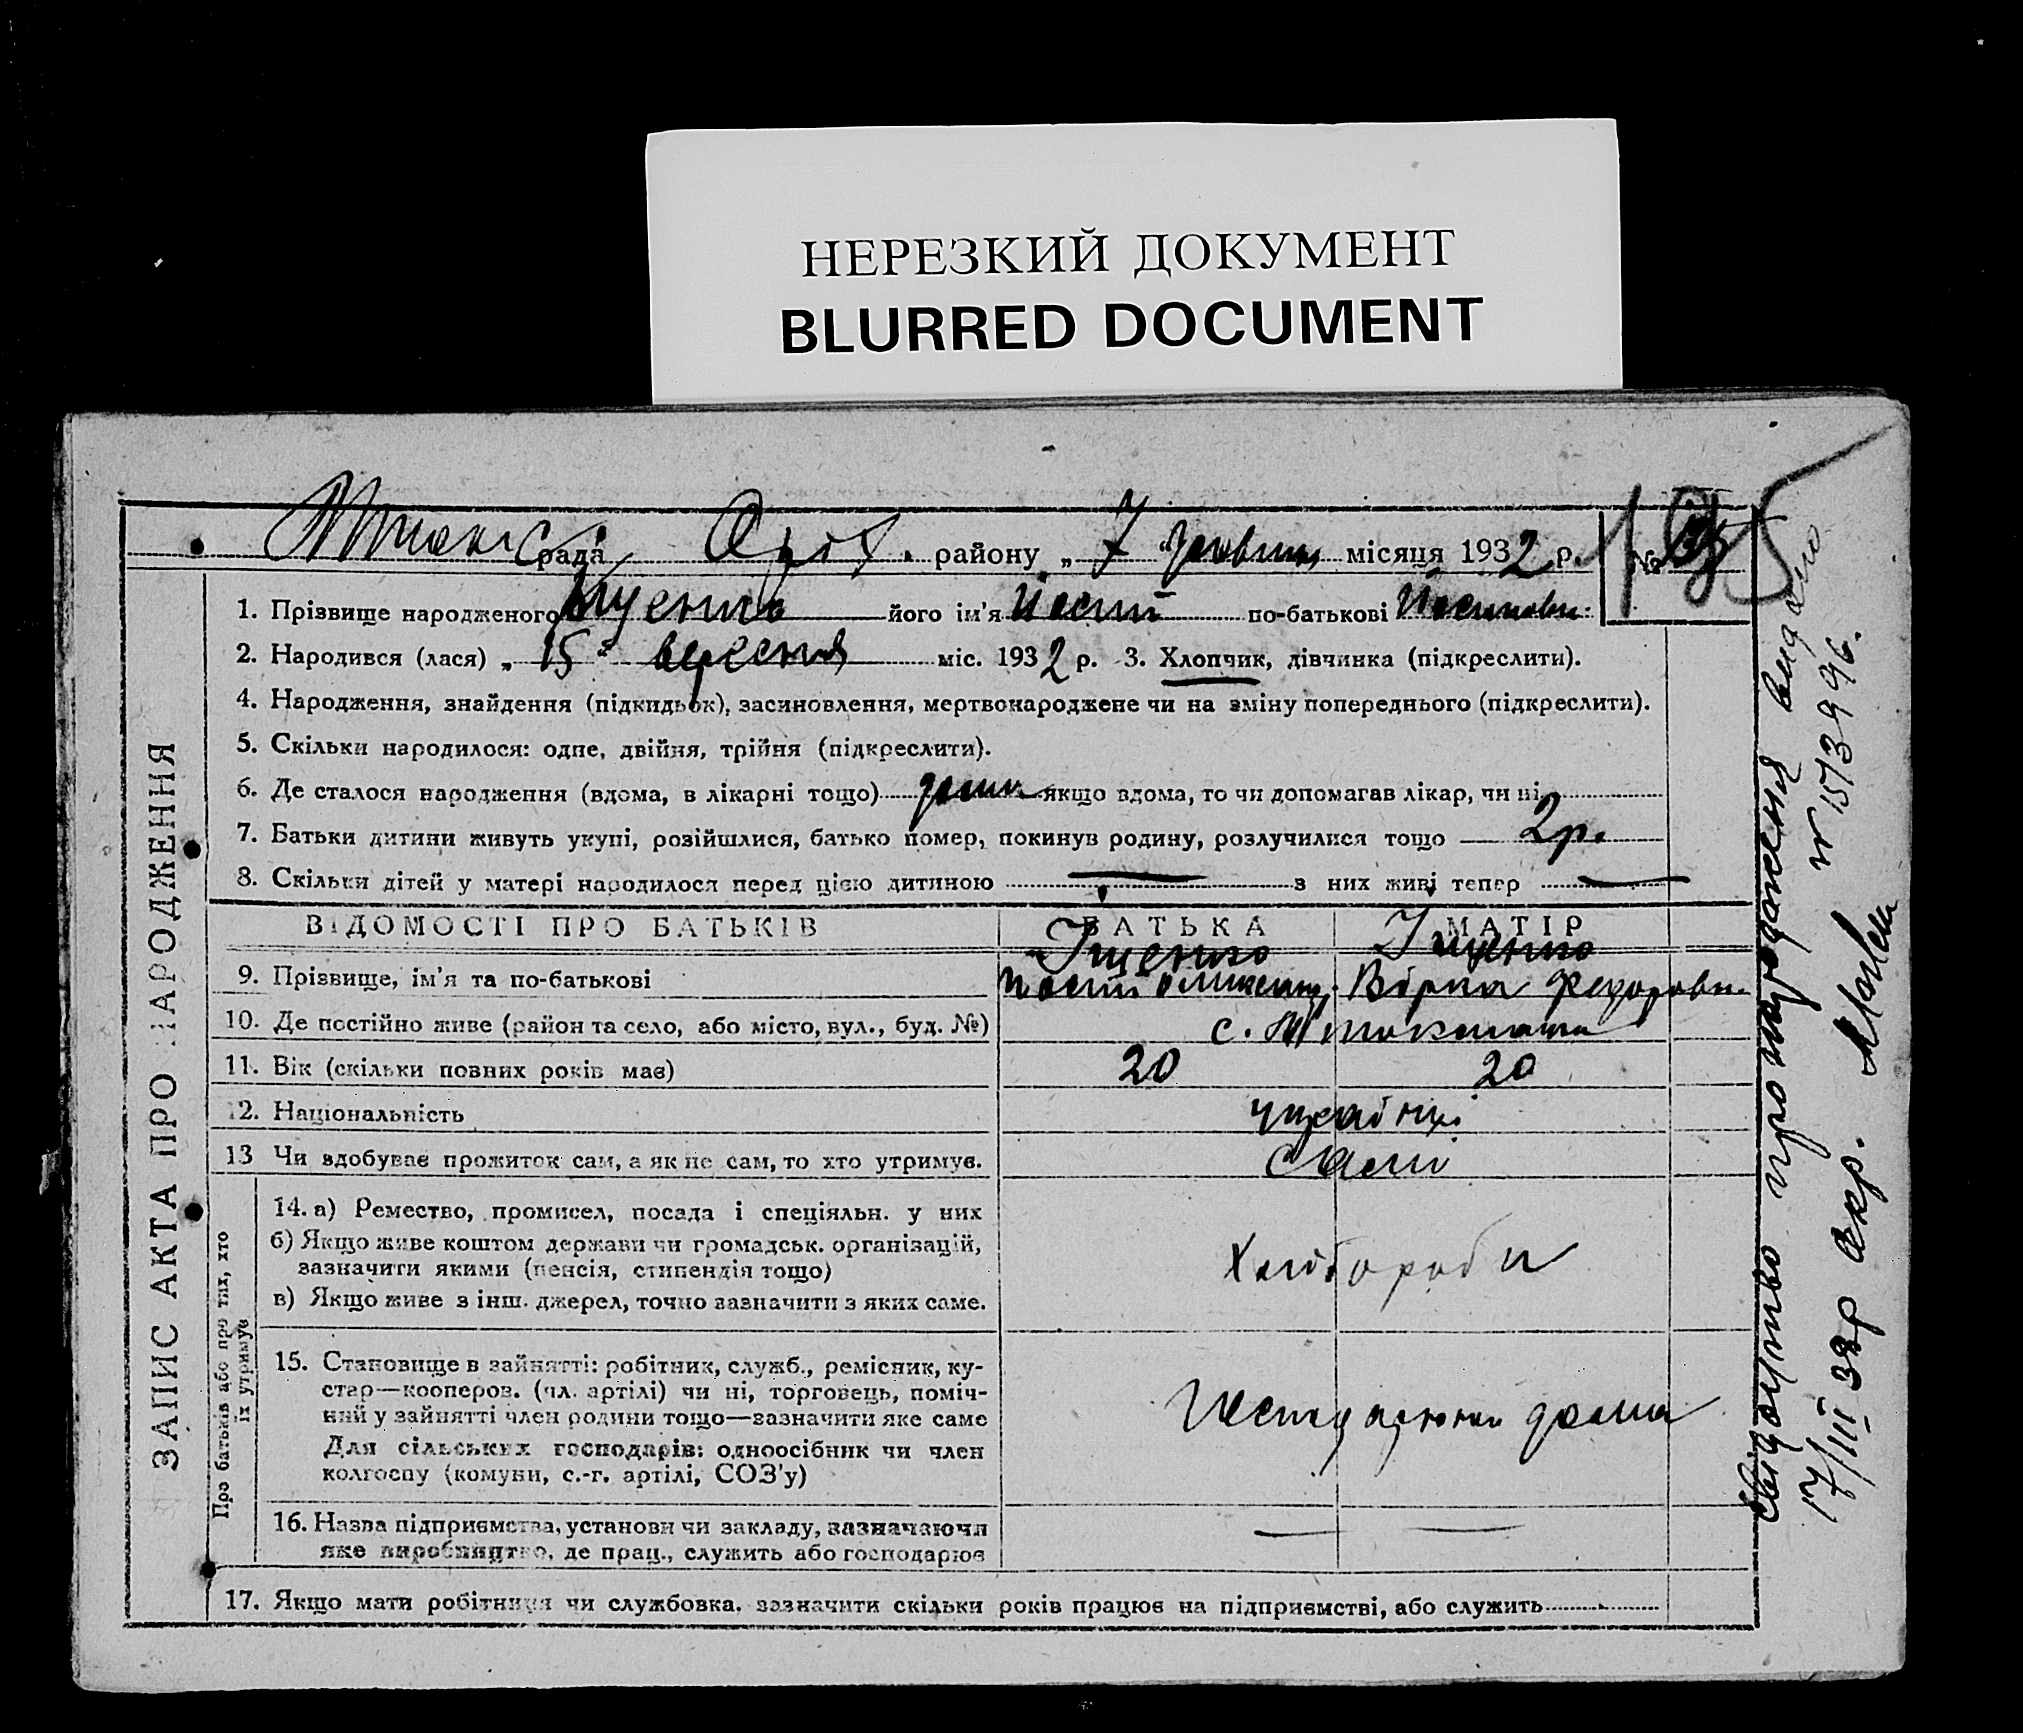 НЕРЕЗКИЙ ДОКУМЕНТ
BLURRED DOCUMENT
рада району „ 7 “ жовтня місяця 1932 р. №
1. Прізвище народженого його ім'я Йосип по-батькові Йосипови.
2. Народився (лася) „ 15 “ вересня міс. 1932 р. 3. Хлопчик, дівчинка (підкреслити).
4. Народження, знайдення (підкидьок), засиновлення, мертвонароджене чи на зміну попереднього (підкреслити).
5. Скільки народилося: одне, двійня, трійня (підкреслити).
6. Де сталося народження (вдома, в лікарні тощо) дома якщо вдома, то чи допомагав лікар, чи ні
7. Батьки дитини живуть укупі, розійшлися, батько помер, покинув родину, розлучилися тощо 2р.
8. Скільки дітей у матері народилося перед цією дитиною — з них живі тепер —
ВІДОМОСТІ ПРО БАТЬКІВ БАТЬКА МАТІР
Іщенко Іщенко
9. Прізвище, ім'я та по-батькові Йосип Вірка Федоровн.
10. Де постійно живе (район та село, або місто, вул., буд. №) с.
11. Вік (скільки повних років має) 20 20
12. Національність українці
13 Чи здобуває прожиток сам, а як не сам, то хто утримує. Сами
ЗАПИС АКТА ПРО НАРОДЖЕННЯ
Про батьків або про тих, хто
їх утримує
14. а) Ремество, промисел, посада і спеціяльн. у них
б) Якщо живе коштом держави чи громадськ. організацій,
зазначити якими (пенсія, стипендія тощо)
в) Якщо живе з інш. джерел, точно зазначити з яких саме.
Хлібороби
15. Становище в зайнятті: робітник, служб., ремісник, ку-
стар—кооперов. (чл. артілі) чи ні, торговець, поміч-
ний у зайнятті член родини тощо—зазначити яке саме
Для сільських господарів: одноосібник чи член
колгоспу (комуни, с.-г. артілі, СОЗ'у)
дома
16. Назва підприємства, установи чи закладу, зазначаючи
яке виробництво, де прац., служить або господарює
— —
17. Якщо мати робітниця чи службовка, зазначити скільки років працює на підприємстві, або служить
Свідоцтво про народження видано
17/III 38р № 1573996.